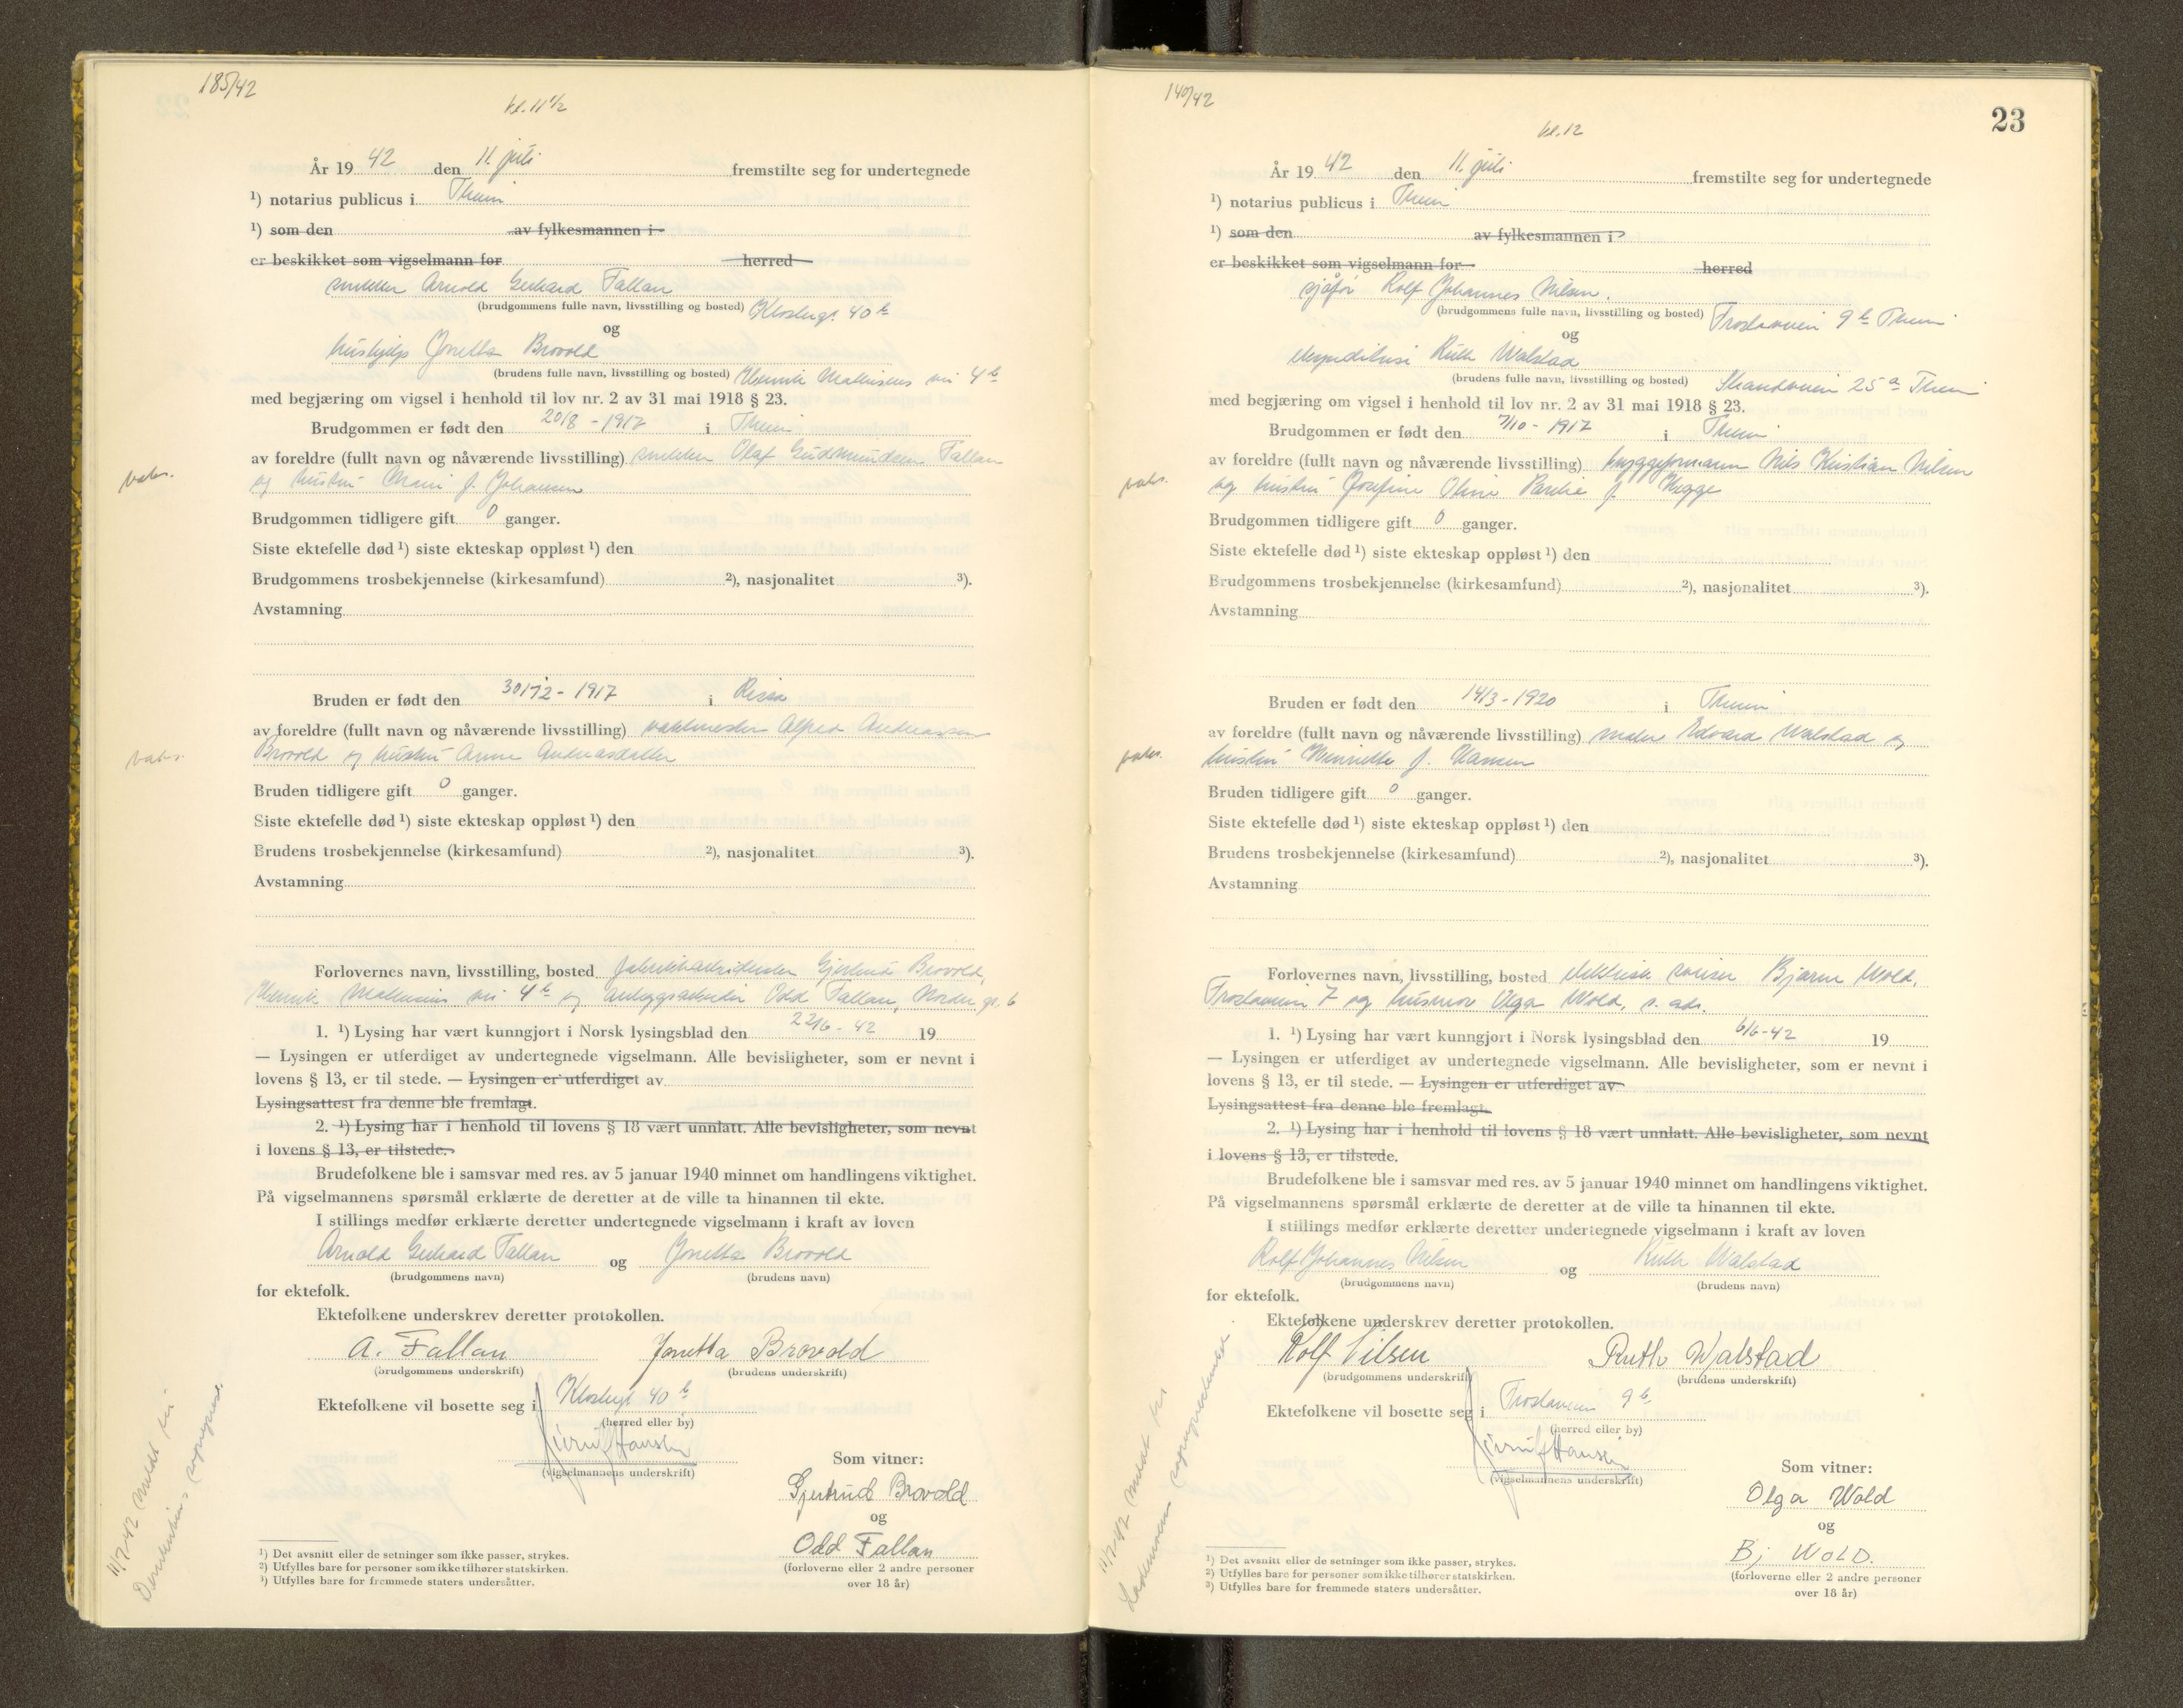 185/42
kl. 11 1/2
År 19 42 den 11. juli fremstilte seg for undertegnede
1) notarius publicus i Thun
1) som den av fylkesmannen i
er beskikket som vigselmann for herred
snekker Arnold Gerhard Fallan
(brudgommens fulle navn, livsstilling og bosted) Klostergt. 40 b
og
hushjelp Jonetta Brovold
(brudens fulle navn, livsstilling og bosted) Henrik Mathisens vei 4 b
med begjæring om vigsel i henhold til lov nr. 2 av 31 mai 1918 § 23.
Brudgommen er født den 20/8 - 1917 i Thm
av foreldre (fullt navn og nåværende livsstilling) snekker Olaf Gudmundsen Fallan
og hustru f. Johansen
vaks.
Brudgommen tidligere gift 0 ganger.
Siste ektefelle død 1) siste ekteskap oppløst 1) den
Brudgommens trosbekjennelse (kirkesamfund) 2), nasjonalitet 3).
Avstamning
Bruden er født den 30/12 - 1917 i Rissa
av foreldre (fullt navn og nåværende livsstilling) vaktmester Alfred Andreassen
Brovold og hustru Anne Andreasdatter
vaks.
Bruden tidligere gift 0 ganger.
Siste ektefelle død 1) siste ekteskap oppløst 1) den
Brudens trosbekjennelse (kirkesamfund) 2), nasjonalitet 3).
Avstamning
Forlovernes navn, livsstilling, bosted fabrikkarbeiderske Gjertrud Brovold,
Henrik Mathisens vei 4 b og anleggsarbeider Odd Fallan, Nordregt. 6
1. 1) Lysing har vært kunngjort i Norsk lysingsblad den 22/6 - 42 19
— Lysingen er utferdiget av undertegnede vigselmann. Alle bevisligheter, som er nevnt i
lovens § 13, er til stede. — Lysingen er utferdiget av
Lysingsattest fra denne ble fremlagt.
2. 1) Lysing har i henhold til lovens § 18 vært unnlatt. Alle bevisligheter, som nevnt
i lovens § 13, er tilstede.
Brudefolkene ble i samsvar med res. av 5 januar 1940 minnet om handlingens viktighet.
På vigselmannens spørsmål erklærte de deretter at de ville ta hinannen til ekte.
I stillings medfør erklærte deretter undertegnede vigselmann i kraft av loven
Arnold Gerhard Fallan og Jonetta Brovold
(brudgommens navn) (brudens navn)
for ektefolk.
Ektefolkene underskrev deretter protokollen.
A. Fallan Jonetta Brovold
(brudgommens underskrift) (brudens underskrift)
Ektefolkene vil bosette seg i Klostergt. 40 b
(herred eller by)
Hansen
(vigselmannens underskrift)
Som vitner:
Gjertrud Brovold
og
Odd Fallan
(forloverne eller 2 andre personer
over 18 år)
1) Det avsnitt eller de setninger som ikke passer, strykes.
2) Utfylles bare for personer som ikke tilhører statskirken.
3) Utfylles bare for fremmede staters undersåtter.
11/7-42 meldt til
sogneprest.
140/42
kl. 12
23
År 19 42 den 11. juli fremstilte seg for undertegnede
1) notarius publicus i Thm
1) som den av fylkesmannen i
er beskikket som vigselmann for herred
sjåfør Rolf Johannes Nilsen.
(brudgommens fulle navn, livsstilling og bosted) Frostaveien 9 b Thm
og
ekspeditrise Ruth Walstad
(brudens fulle navn, livsstilling og bosted) Strandveien 25 a Thm
med begjæring om vigsel i henhold til lov nr. 2 av 31 mai 1918 § 23.
Brudgommen er født den 7/10 - 1917 i Thm
av foreldre (fullt navn og nåværende livsstilling) byggeformann Nils Kristian Nilsen
og hustru Josefine Oline f. Hegge
vaks.
Brudgommen tidligere gift 0 ganger.
Siste ektefelle død 1) siste ekteskap oppløst 1) den
Brudgommens trosbekjennelse (kirkesamfund) 2), nasjonalitet 3).
Avstamning
Bruden er født den 14/3 - 1920 i Thm
av foreldre (fullt navn og nåværende livsstilling) maler Edvard Walstad og
hustru Henriette f. Hansen
vaks.
Bruden tidligere gift 0 ganger.
Siste ektefelle død 1) siste ekteskap oppløst 1) den
Brudens trosbekjennelse (kirkesamfund) 2), nasjonalitet 3).
Avstamning
Forlovernes navn, livsstilling, bosted elektrisk sveiser Bjarne Wold,
Frostaveien 7 og husmor Olga Wold, s. ads.
1. 1) Lysing har vært kunngjort i Norsk lysingsblad den 6/6-42 19
— Lysingen er utferdiget av undertegnede vigselmann. Alle bevisligheter, som er nevnt i
lovens § 13, er til stede. — Lysingen er utferdiget av
Lysingsattest fra denne ble fremlagt.
2. 1) Lysing har i henhold til lovens § 18 vært unnlatt. Alle bevisligheter, som nevnt
i lovens § 13, er tilstede.
Brudefolkene ble i samsvar med res. av 5 januar 1940 minnet om handlingens viktighet.
På vigselmannens spørsmål erklærte de deretter at de ville ta hinannen til ekte.
I stillings medfør erklærte deretter undertegnede vigselmann i kraft av loven
Rolf Johannes Nilsen og Ruth Walstad
(brudgommens navn) (brudens navn)
for ektefolk.
Ektefolkene underskrev deretter protokollen.
Rolf Nilsen Ruth Walstad
(brudgommens underskrift) (brudens underskrift)
Ektefolkene vil bosette seg i Frostaveien 9 b.
(herred eller by)
Hansen
(vigselmannens underskrift)
Som vitner:
Olga Wold
og
Bj Wold.
(forloverne eller 2 andre personer
over 18 år)
1) Det avsnitt eller de setninger som ikke passer, strykes.
2) Utfylles bare for personer som ikke tilhører statskirken.
3) Utfylles bare for fremmede staters undersåtter.
11/7-42 meldt til
Lademoen sogneprestembed.